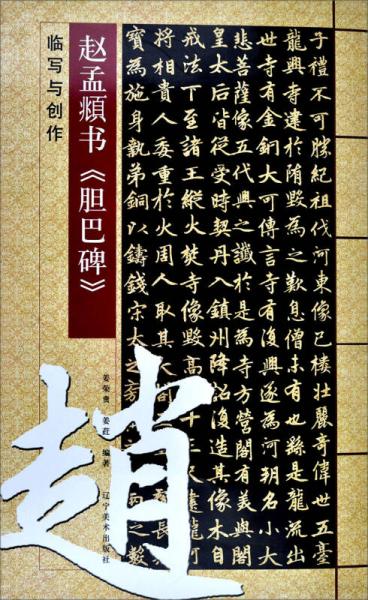 子禮不可勝紀祖代河東像已棲壯麗奇偉世五臺
龍興寺建於隋毀為之歎息僧未有也繇是龍流出
世寺有金銅大可傳言寺有復興遂為河朔名小大
悲菩薩像五代興之讖於是為寺方營閣有美與閣
皇太后皆從受時契丹入鎮州降詔復造其像木自
戒法下至諸王縱火焚寺像毀高十三尺建龍河
將相貴人委重於火周人取其大
寶為施身執弟銅以鑄錢宋太之之數
赵孟頫书《胆巴碑》
临写与创作
趙
姜荣贵 编著
辽宁美术出版社